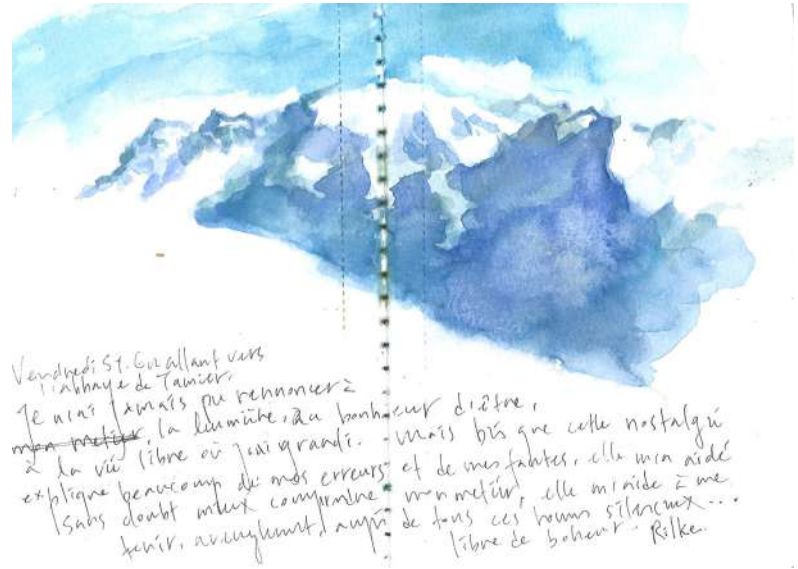 Vendredi St. En allant vers
l'abbaye de Tamier.
Je n'ai jamais pu rennoncer à
mon metier, la lumière, au bonheur d'être,
à la vie libre où j'ai grandi. mais bis que cette nostalgie
explique beaucoup de mes erreurs et de mes fautes, elle m'a aidé
sans doubt mieux comprendre mon metier, elle m'aide à me
tenir, aveuglment, auprè de tous ces homms silencieux...
libre de boheur. Rilke.